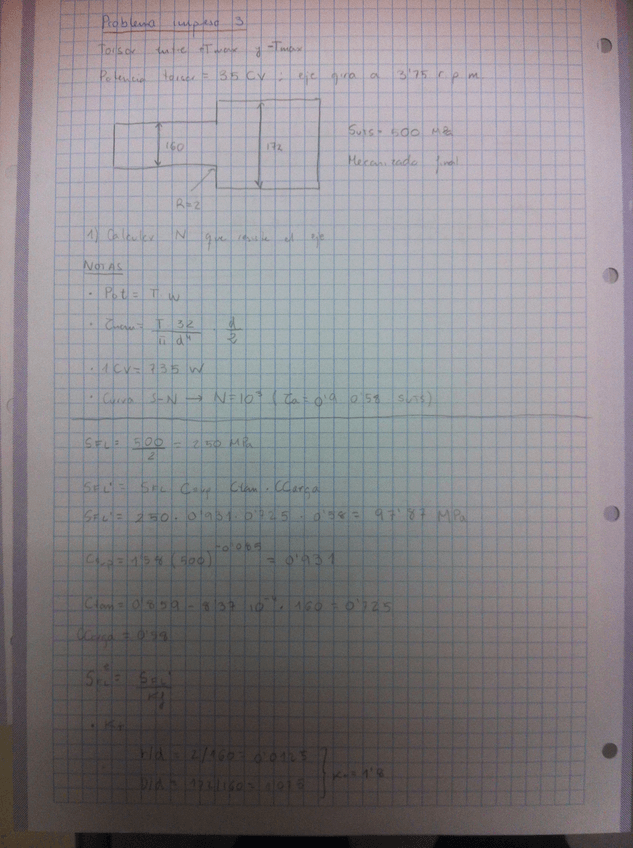 Problema impreso 3
Torsor entre +Tmax y -Tmax
Potencia torsor = 35 CV ; eje gira a 3'75 r.p.m
160
172
R=2
SUTS = 500 MPa
Mecanizado final
1) Calcular N que resiste el eje
NOTAS
· Pot = T w
· τnom = T 32 / π d⁴ · d / 2
· 1 CV = 735 W
· Curva S-N → N=10³ (τa = 0'9 0'58 SUTS)
SFL = 500 / 2 = 250 MPa
SFL' = SFL Csup Ctam · CCarga
SFL' = 250 · 0'931 · 0'725 · 0'58 = 97'87 MPa
Csup = 1'58 (500)^-0'085 = 0'931
Ctam = 0'859 - 8'37 10⁻⁴ · 160 = 0'725
CCarga = 0'58
SFL = SFL' / Kf
· Kt
r/d = 2/160 = 0'0125
D/d = 172/160 = 1'075
Kt = 1'8